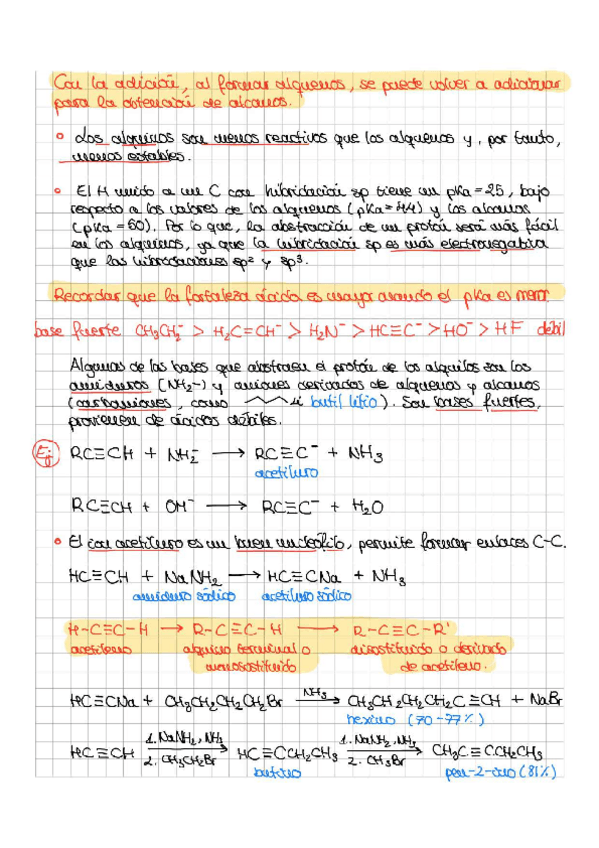 Con la adición, al formar alquenos, se puede volver a adicionar
para la obtención de alcanos.
° Los alquinos son menos reactivos que los alquenos y, por tanto,
menos estables.
° El H unido a un C con hibridación sp tiene un pKa = 25, bajo
respecto a los valores de los alquenos (pKa = 44) y los alcanos
(pKa = 60). Por lo que, la abstracción de un protón será más fácil
en los alquinos, ya que la hibridación sp es más electronegativa
que las hibridaciones sp² y sp³.
Recordar que la fortaleza ácida es mayor cuando el pKa es menor.
base fuerte CH₃CH₂⁻ > H₂C=CH⁻ > H₂N⁻ > HC≡C⁻ > HO⁻ > HF débil
Algunas de las bases que abstraen el protón de los alquilos son los
amiduros (NH₂⁻) y aniones derivados de alquenos y alcanos
(carbaniones, como Li butil litio). Son bases fuertes,
provienen de ácidos débiles.
Ej RC≡CH + NH₂⁻ → RC≡C⁻ + NH₃
acetiluro
RC≡CH + OH⁻ → RC≡C⁻ + H₂O
° El ion acetiluro es un buen nucleófilo, permite formar enlaces C-C.
HC≡CH + NaNH₂ → HC≡CNa + NH₃
amiduro sódico acetiluro sódico
H-C≡C-H → R-C≡C-H → R-C≡C-R'
acetileno alquino terminal o disustituido o derivado
monosustituido de acetileno.
HC≡CNa + CH₃CH₂CH₂CH₂Br NH₃→ CH₃CH₂CH₂CH₂C≡CH + NaBr
hexino (70-77%)
HC≡CH 1. NaNH₂, NH₃ → HC≡CCH₂CH₃ 1. NaNH₂, NH₃ → CH₃C≡CCH₂CH₃
2. CH₃CH₂Br 2. CH₃Br
butino pen-2-ino (81%)